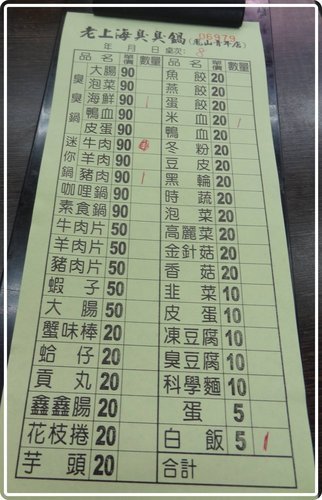 老上海臭臭鍋(鳳山青年店)
06979
年 月 日 桌次: 8
品名 單價 數量
臭臭鍋
大腸 90
泡菜 90
海鮮 90 1
鴨血 90
皮蛋 90
迷你鍋
牛肉 90
羊肉 90
豬肉 90 1
咖哩鍋 90
素食鍋 90
牛肉片 50
羊肉片 50
豬肉片 50
蝦子 50
大腸 50
蟹味棒 20
蛤仔 20
貢丸 20
鑫鑫腸 20
花枝捲 20
芋頭 20
品名 單價 數量
魚餃 20
燕餃 20
蛋餃 20
米血 20 1
鴨血 20
冬粉 20
豆皮 20
黑輪 20
時蔬 20
泡菜 20
高麗菜 20
金針菇 20
香菇 20
韭菜 10
皮蛋 10
凍豆腐 10
臭豆腐 10
科學麵 10
蛋 5
白飯 5 1
合計